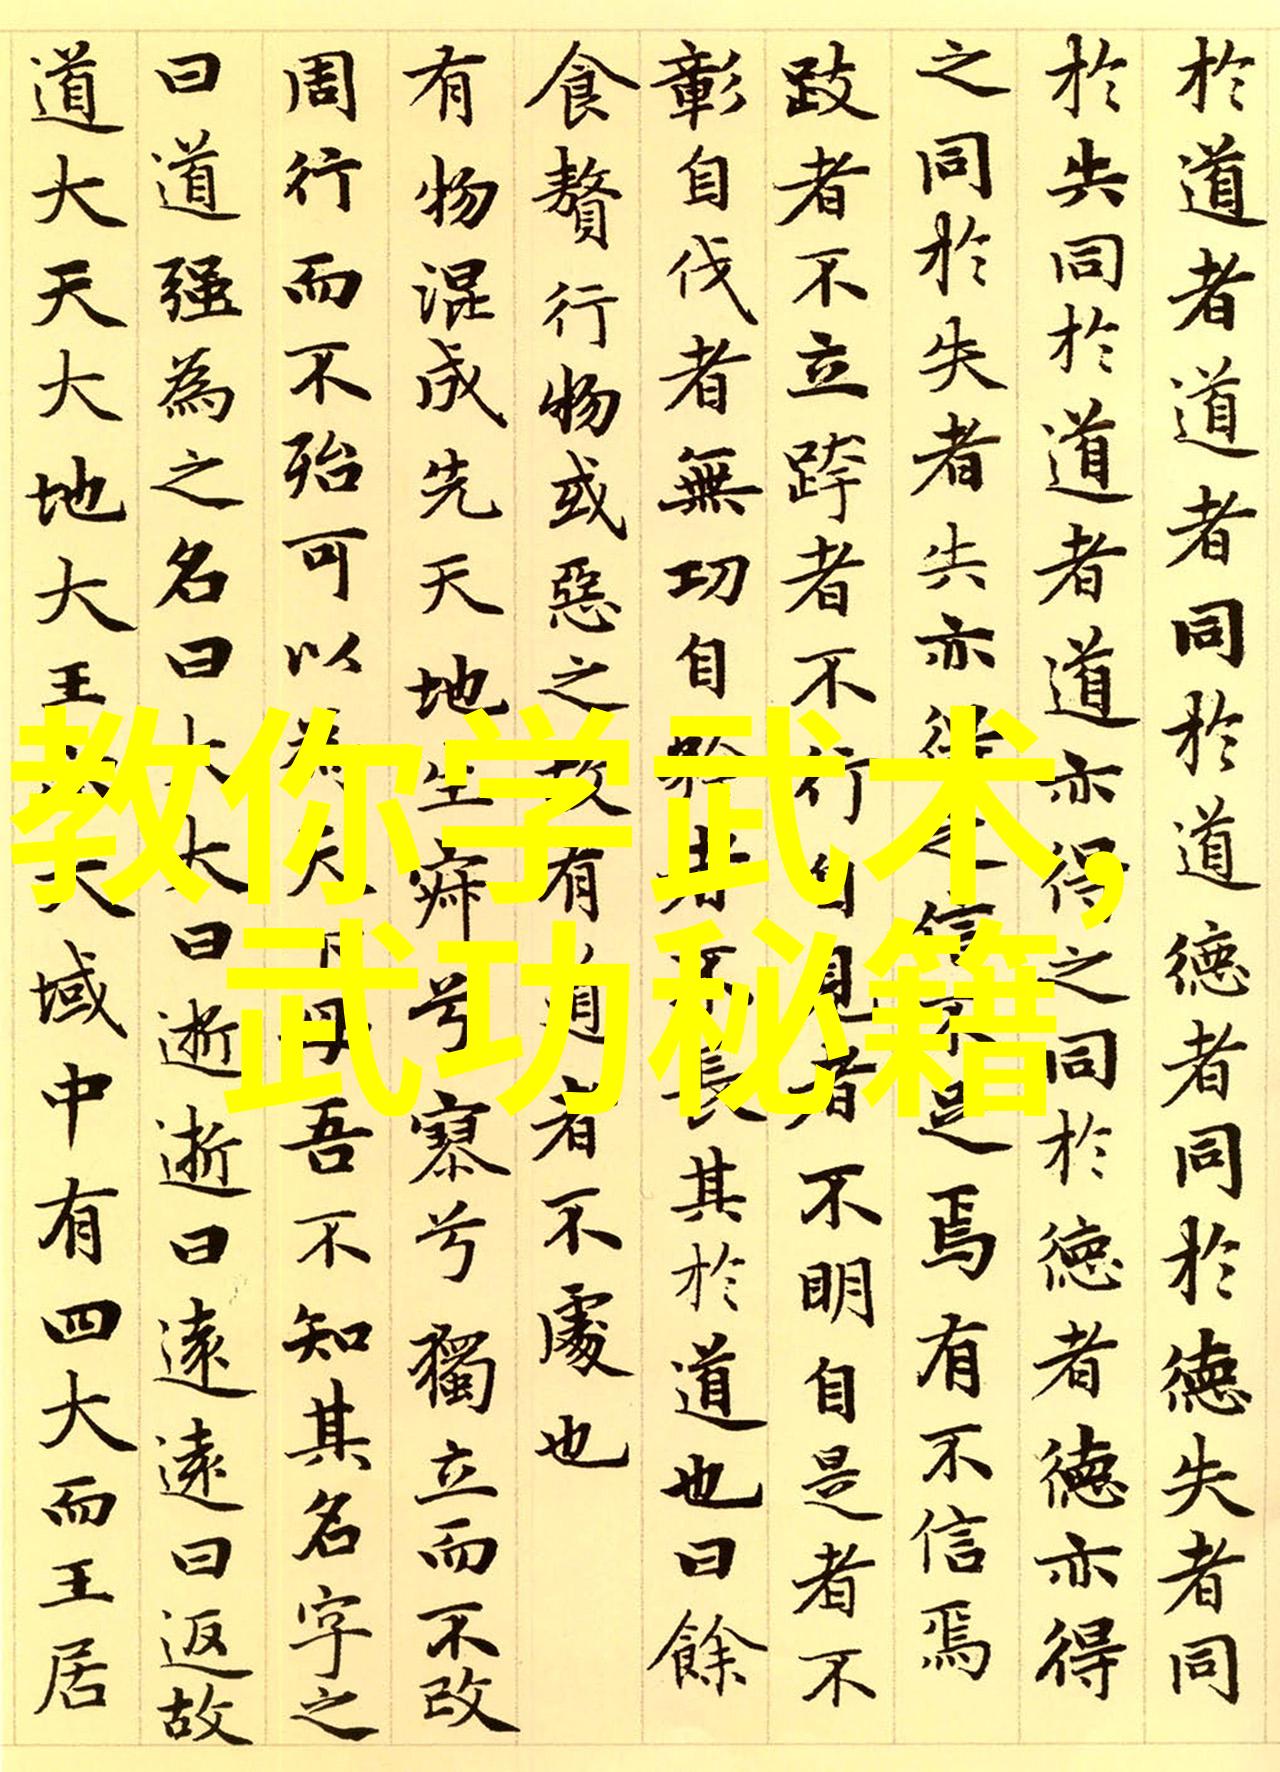 於道者道者同於道德者同於德失者同
於失同於道者道亦得之同於德者德亦得
之同於失者失亦得之信不足焉有不信焉
跂者不立跨者不行自見者不明自是者不
彰自伐者無功自矜者不長其於道也曰餘
食贅行物或惡之故有道者不處也
有物混成先天地生寂兮寥兮獨立而不改
周行而不殆可以為天下母吾不知其名字之
曰道强為之名曰大大曰逝逝曰遠遠曰返故
道大天大地大王亦大域中有四大而王居
教你学武术,
武功秘籍